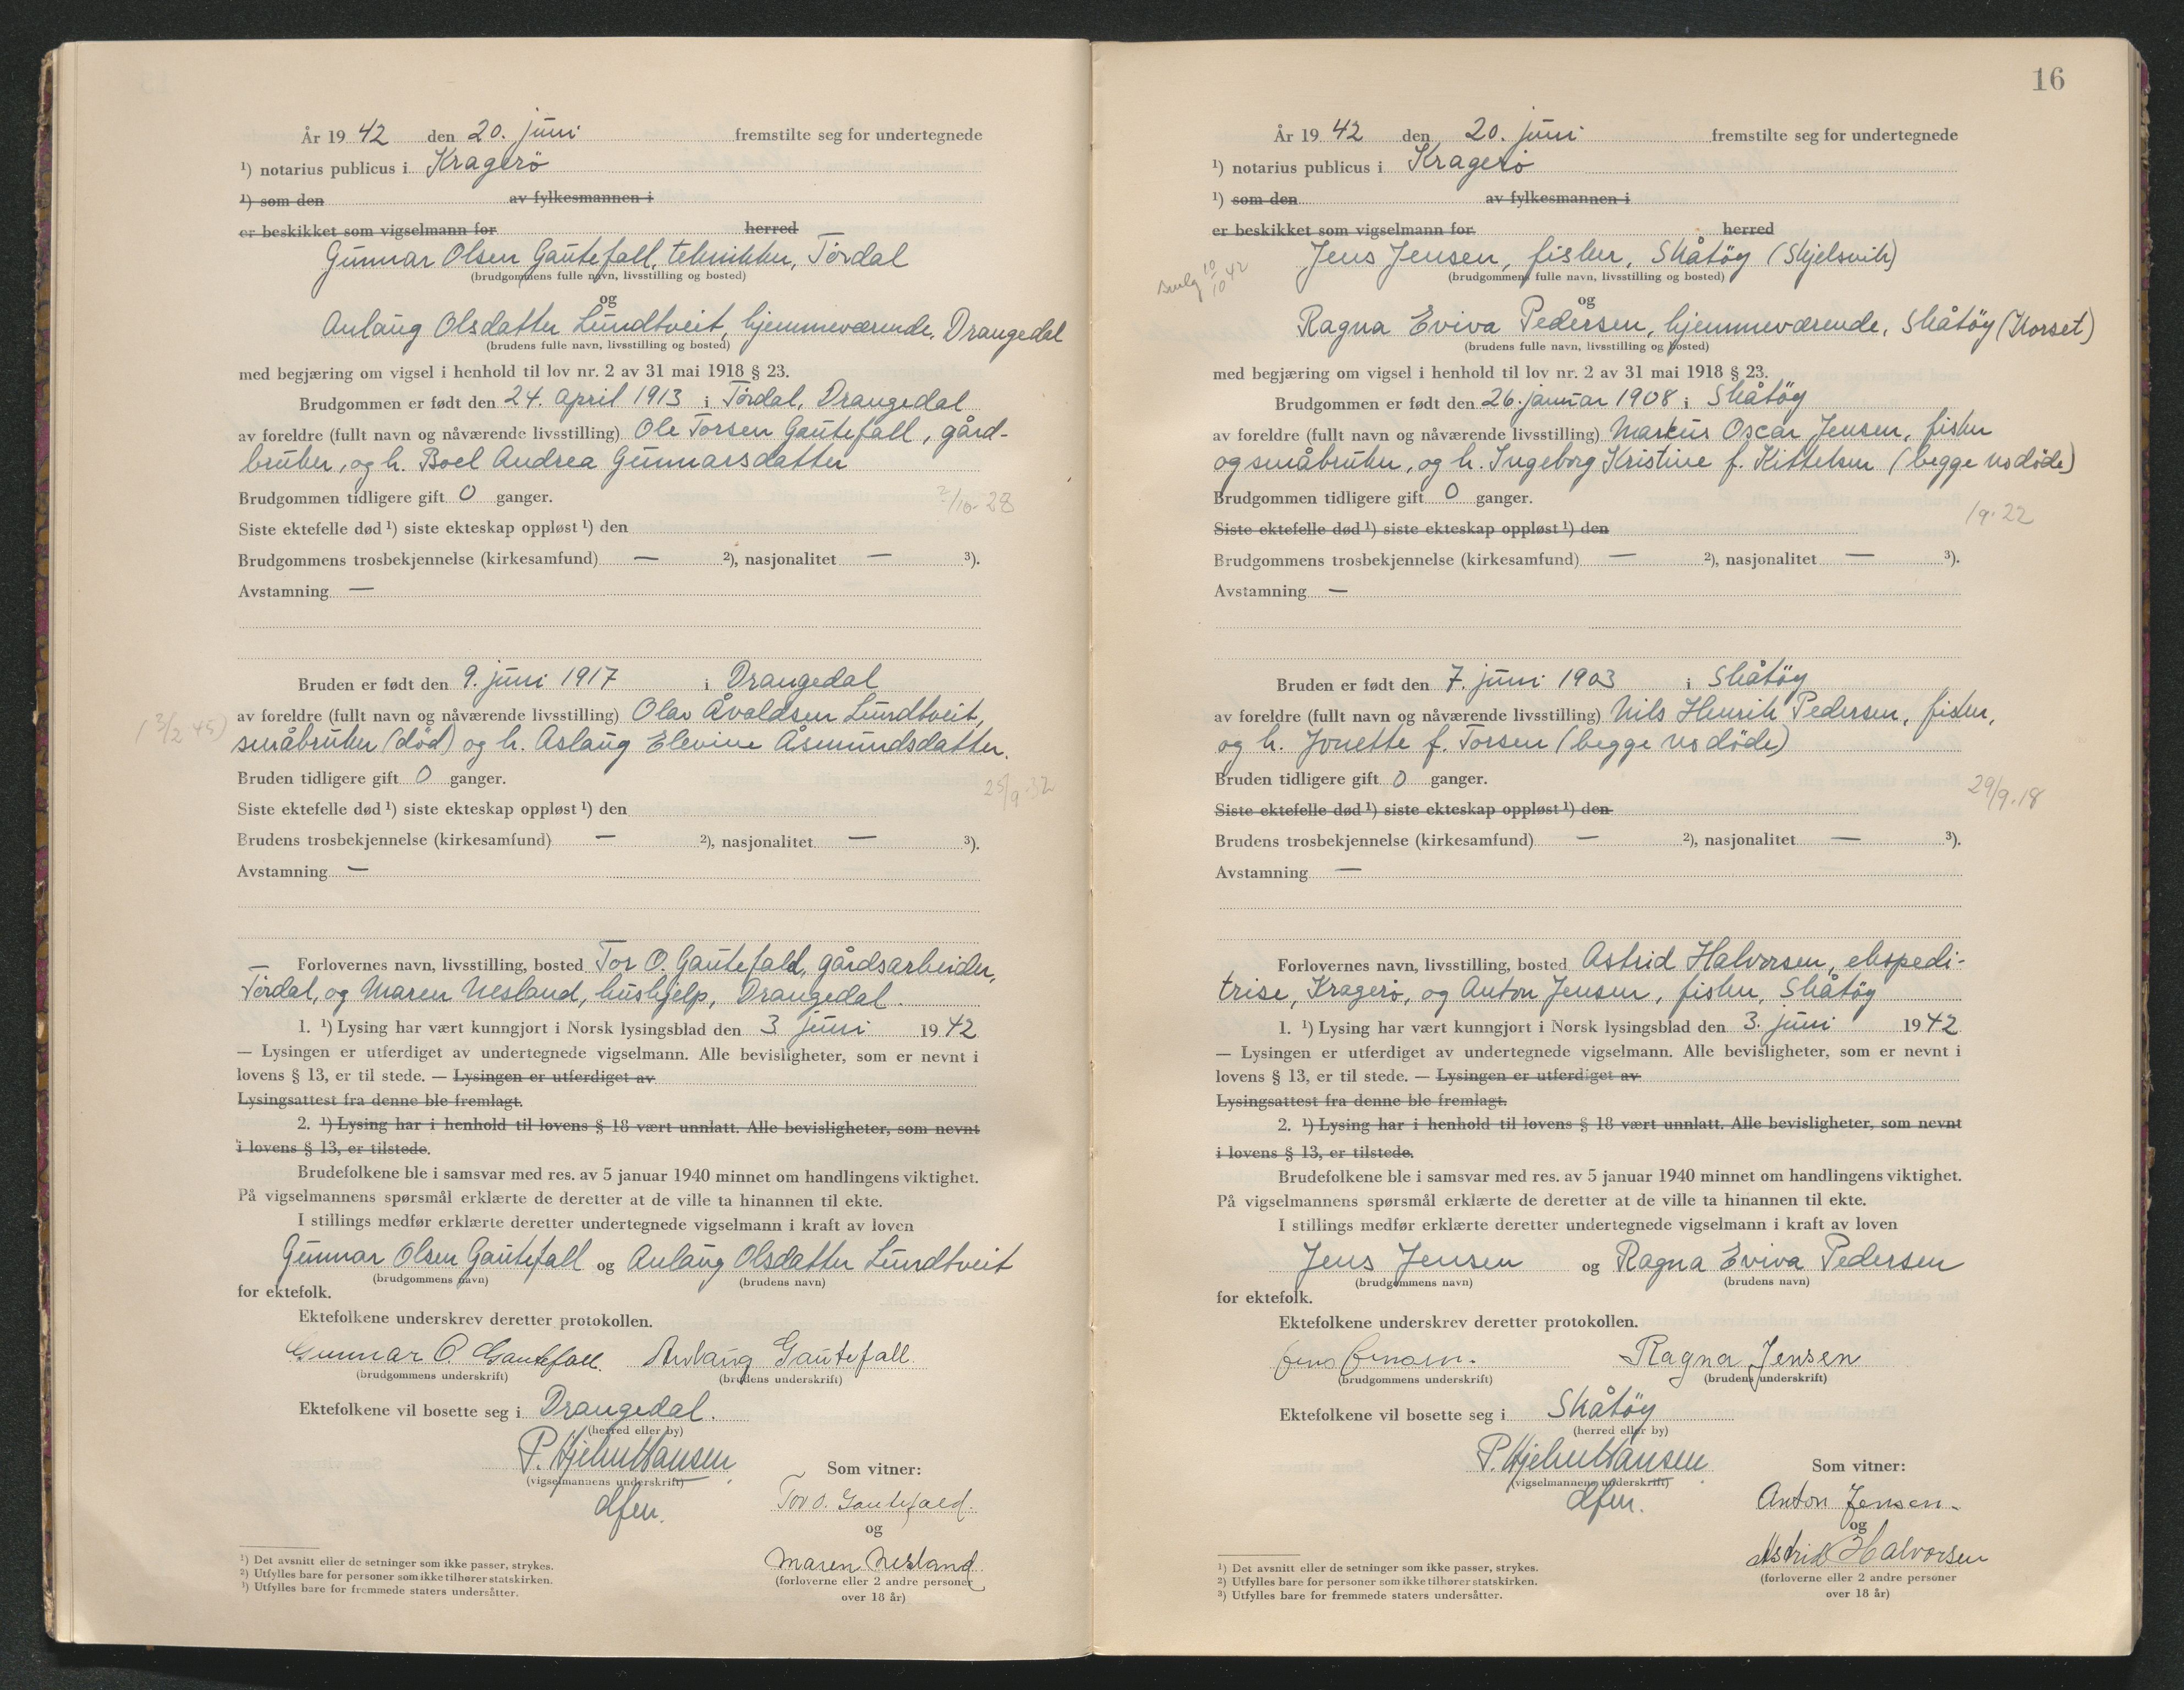 År 1942 den 20. juni fremstilte seg for undertegnede
¹) notarius publicus i Kragerö
¹) som den av fylkesmannen i
er beskikket som vigselmann for herred
Gunnar Olsen Gautefall, tekniker, Tördal
(brudgommens fulle navn, livsstilling og bosted)
og
Anlaug Olsdatter Lundtveit, hjemmeværende, Drangedal
(brudens fulle navn, livsstilling og bosted)
med begjæring om vigsel i henhold til lov nr. 2 av 31 mai 1918 § 23.
Brudgommen er født den 24. april 1913 i Tördal, Drangedal
av foreldre (fullt navn og nåværende livsstilling) Ole Torsen Gautefall, gård-
bruker, og h. Boel Andrea Gunnarsdatter
Brudgommen tidligere gift 0 ganger.
2/10-28
Siste ektefelle død ¹) siste ekteskap oppløst ¹) den
Brudgommens trosbekjennelse (kirkesamfund) — ²), nasjonalitet — ³).
Avstamning —
Bruden er født den 9. juni 1917 i Drangedal
av foreldre (fullt navn og nåværende livsstilling) Olav Åvaldsen Lundtveit,
(3/2 45)
småbruker (död) og h. Aslaug Elevine Åsmundsdatter.
Bruden tidligere gift 0 ganger.
25/9-32
Siste ektefelle død ¹) siste ekteskap oppløst ¹) den
Brudens trosbekjennelse (kirkesamfund) — ²), nasjonalitet — ³).
Avstamning —
Forlovernes navn, livsstilling, bosted Tor O. Gautefald, gårdsarbeider,
Tördal, og Maren Nesland, hushjelp, Drangedal.
1. ¹) Lysing har vært kunngjort i Norsk lysingsblad den 3 juni 1942
— Lysingen er utferdiget av undertegnede vigselmann. Alle bevisligheter, som er nevnt i
lovens § 13, er til stede. — Lysingen er utferdiget av
Lysingsattest fra denne ble fremlagt.
2. ¹) Lysing har i henhold til lovens § 18 vært unnlatt. Alle bevisligheter, som nevnt
i lovens § 13, er tilstede.
Brudefolkene ble i samsvar med res. av 5 januar 1940 minnet om handlingens viktighet.
På vigselmannens spørsmål erklærte de deretter at de ville ta hinannen til ekte.
I stillings medfør erklærte deretter undertegnede vigselmann i kraft av loven
Gunnar Olsen Gautefall og Anlaug Olsdatter Lundtveit
(brudgommens navn) (brudens navn)
for ektefolk.
Ektefolkene underskrev deretter protokollen.
Gunnar O. Gautefall. Anlaug Gautefall.
(brudgommens underskrift) (brudens underskrift)
Ektefolkene vil bosette seg i Drangedal.
(herred eller by)
P. Hjelm Hansen
(vigselmannens underskrift)
dfm.
Som vitner:
Tor O. Gautefald.
og
Maren Nesland
(forloverne eller 2 andre personer
over 18 år)
¹) Det avsnitt eller de setninger som ikke passer, strykes.
²) Utfylles bare for personer som ikke tilhører statskirken.
³) Utfylles bare for fremmede staters undersåtter.
16
År 1942 den 20. juni fremstilte seg for undertegnede
¹) notarius publicus i Kragerö
¹) som den av fylkesmannen i
er beskikket som vigselmann for herred
10/10 42
Jens Jensen, fisker, Skåtöy (Skjelsvik)
(brudgommens fulle navn, livsstilling og bosted)
og
Ragna Eviva Pedersen, hjemmeværende, Skåtöy (Korset)
(brudens fulle navn, livsstilling og bosted)
med begjæring om vigsel i henhold til lov nr. 2 av 31 mai 1918 § 23.
Brudgommen er født den 26. januar 1908 i Skåtöy
av foreldre (fullt navn og nåværende livsstilling) Markus Oscar Jensen, fisker
og småbruker, og h. Ingeborg Kristine f. Kittelsen (begge nå döde)
Brudgommen tidligere gift 0 ganger.
19.22
Siste ektefelle død ¹) siste ekteskap oppløst ¹) den
Brudgommens trosbekjennelse (kirkesamfund) — ²), nasjonalitet — ³).
Avstamning —
Bruden er født den 7. juni 1903 i Skåtöy
av foreldre (fullt navn og nåværende livsstilling) Nils Henrik Pedersen, fisker,
og h. Jonette f. Torsen (begge nå döde)
Bruden tidligere gift 0 ganger.
29/9.18
Siste ektefelle død ¹) siste ekteskap oppløst ¹) den
Brudens trosbekjennelse (kirkesamfund) — ²), nasjonalitet — ³).
Avstamning —
Forlovernes navn, livsstilling, bosted Astrid Halvorsen, ekspedi-
trise, Kragerö, og Anton Jensen, fisker, Skåtöy
1. ¹) Lysing har vært kunngjort i Norsk lysingsblad den 3. juni 1942
— Lysingen er utferdiget av undertegnede vigselmann. Alle bevisligheter, som er nevnt i
lovens § 13, er til stede. — Lysingen er utferdiget av
Lysingsattest fra denne ble fremlagt.
2. ¹) Lysing har i henhold til lovens § 18 vært unnlatt. Alle bevisligheter, som nevnt
i lovens § 13, er tilstede.
Brudefolkene ble i samsvar med res. av 5 januar 1940 minnet om handlingens viktighet.
På vigselmannens spørsmål erklærte de deretter at de ville ta hinannen til ekte.
I stillings medfør erklærte deretter undertegnede vigselmann i kraft av loven
Jens Jensen og Ragna Eviva Pedersen
(brudgommens navn) (brudens navn)
for ektefolk.
Ektefolkene underskrev deretter protokollen.
Jens Jensen. Ragna Jensen
(brudgommens underskrift) (brudens underskrift)
Ektefolkene vil bosette seg i Skåtöy
(herred eller by)
P. Hjelm Hansen
(vigselmannens underskrift)
dfm.
Som vitner:
Anton Jensen
og
Astrid Halvorsen
(forloverne eller 2 andre personer
over 18 år)
¹) Det avsnitt eller de setninger som ikke passer, strykes.
²) Utfylles bare for personer som ikke tilhører statskirken.
³) Utfylles bare for fremmede staters undersåtter.